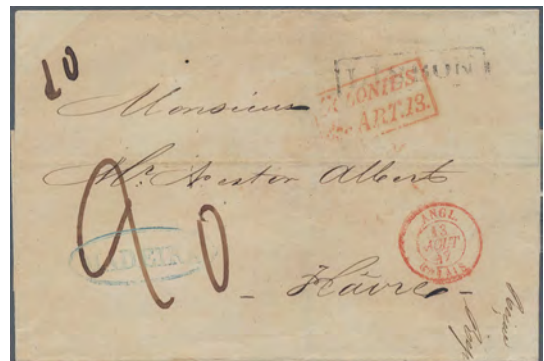 10
COLONIES.
ART.13.
Monsieur
Mr. Nestor Albert
90
MADEIRA
ANGL.
13
AOUT
47
CALAIS
- Hâvre -